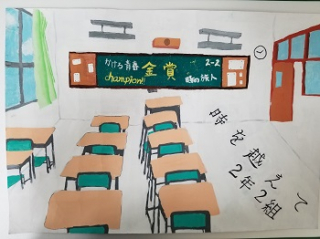 かけろ青春
champion!
金賞
2-2
時の旅人
時を越えて
2年2組